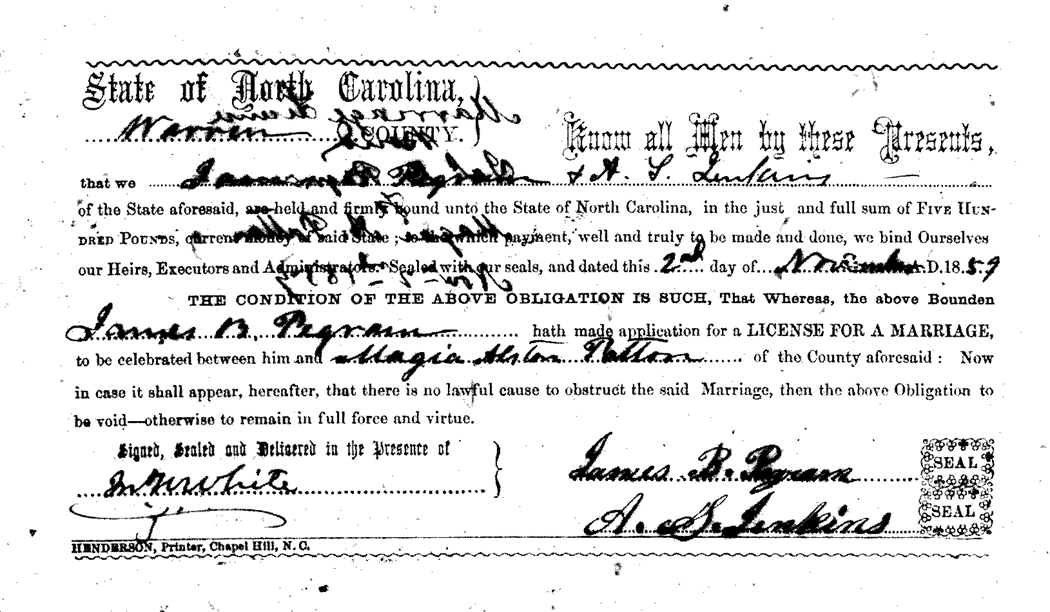 State of North Carolina,
Warren COUNTY.
Know all Men by these Presents,
that we James B. Pegram & A. S. Jenkins
of the State aforesaid, are held and firmly bound unto the State of North Carolina, in the just and full sum of FIVE HUN-
DRED POUNDS, current money of said State; to the which payment, well and truly to be made and done, we bind Ourselves
our Heirs, Executors and Administrators. Sealed with our seals, and dated this 2nd day of November A.D. 1859
THE CONDITION OF THE ABOVE OBLIGATION IS SUCH, That Whereas, the above Bounden
James B. Pegram hath made application for a LICENSE FOR A MARRIAGE,
to be celebrated between him and Magia Alston Pattom of the County aforesaid: Now
in case it shall appear, hereafter, that there is no lawful cause to obstruct the said Marriage, then the above Obligation to
be void—otherwise to remain in full force and virtue.
Signed, Sealed and Delivered in the Presence of
White
James B. Pegram SEAL
A. S. Jenkins SEAL
HENDERSON, Printer, Chapel Hill, N. C.